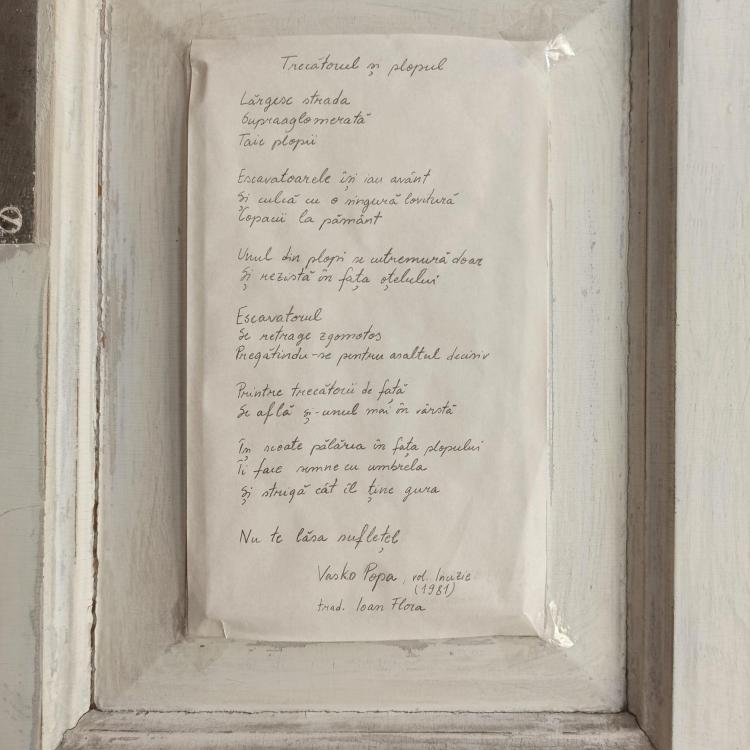 Trecătorul și plopul
Lărgesc strada
Supraaglomerată
Taie plopii
Escavatoarele își iau avânt
Și culcă cu o singură lovitură
Copacii la pământ
Unul din plopi se cutremură doar
Și rezistă în fața oțelului
Escavatorul
Se retrage zgomotos
Pregătindu-se pentru asaltul decisiv
Printre trecătorii de față
Se află și-unul mai în vârstă
Își scoate pălăria în fața plopului
Îi face semne cu umbrela
Și strigă cât îl ține gura
Nu te lăsa sufletel
Vasko Popa, vol. Incizie
(1981)
trad. Ioan Flora